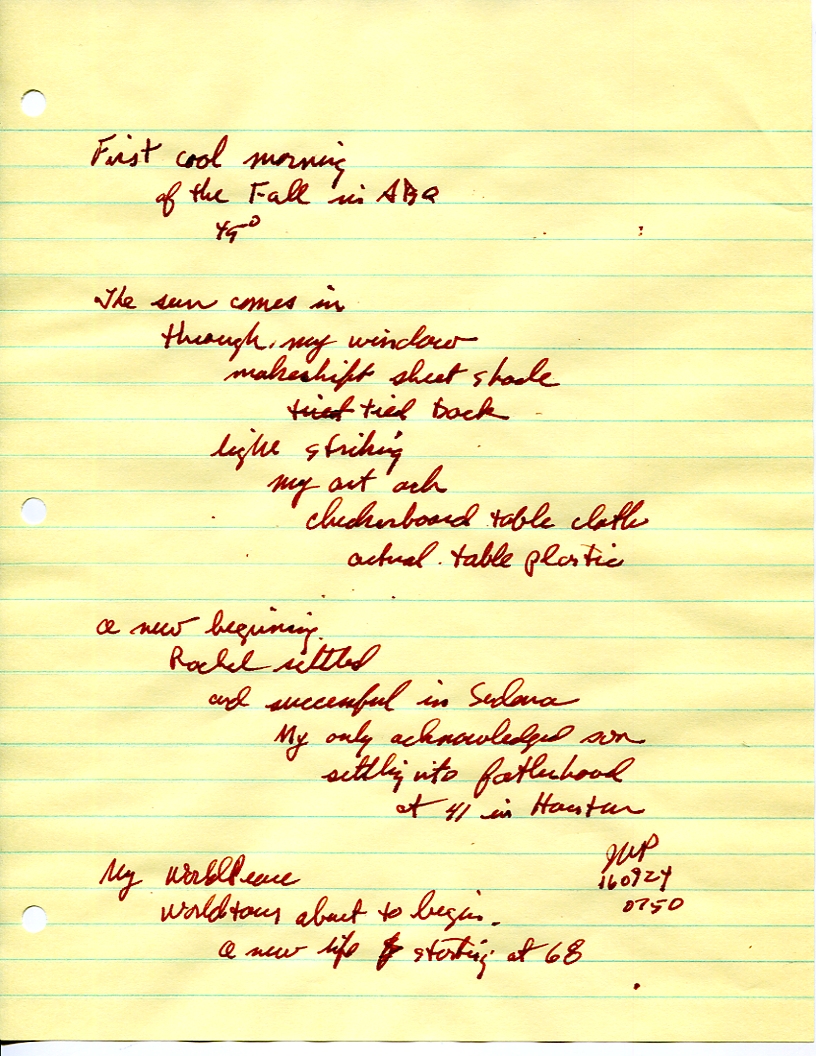 First cool morning
of the Fall in ABQ
45°
The sun comes in
through my window
makeshift sheet shade
tried tied back
light striking
my art
checkerboard table cloth
actual table plastic
a new beginning
Rachel settled
and successful in Sedona
My only acknowledged son
settling into fatherhood
at 41 in Houston
JWP
My WorldPeace
160924
worldtour about to begin.
0750
a new life starting at 68